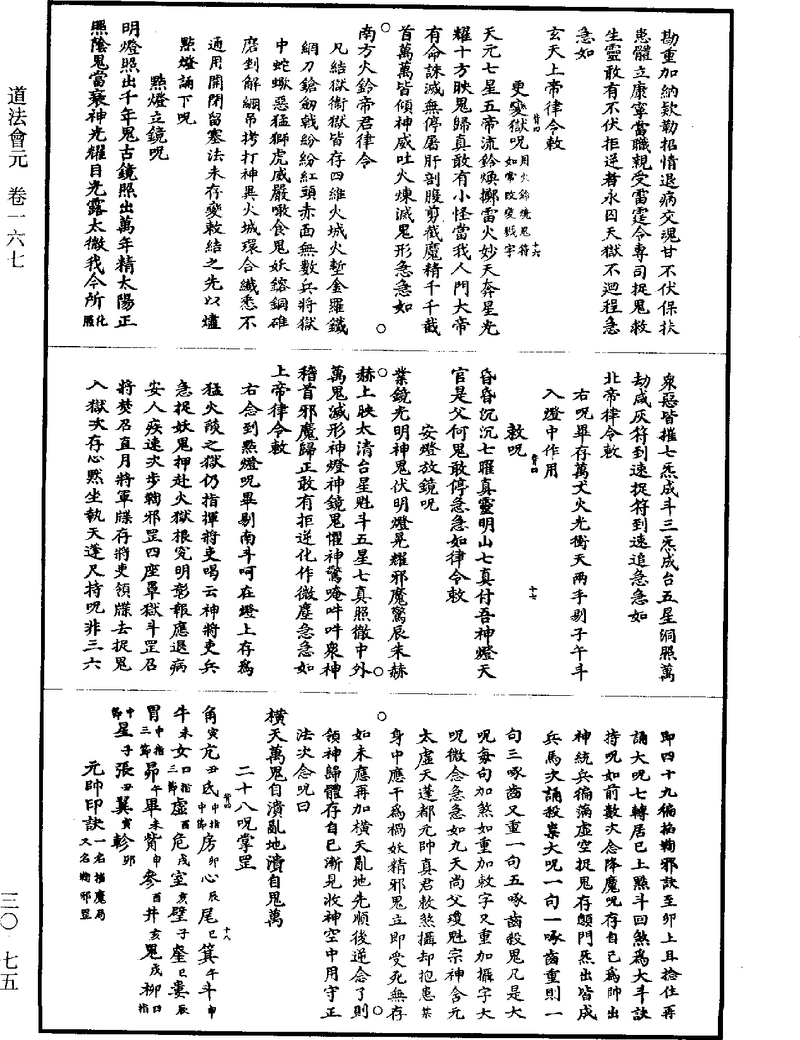 道法會元 卷一六七
三〇 七五
勘重加納欵勒招情退病交魂甘不伏保扶
患體立康寧當職親受雷霆令專司捉鬼救
生靈敢有不伏拒逆者永囚天獄不迴程急
急如
玄天上帝律令敕
更變獄呪如常改變獄字
天元七星五帝流鈴煥擲雷火妙天奔星光
耀十方映鬼歸真敢有小怪當我人門大帝
有命誅滅無停屠肝剖腹剪截魔精千千截
首萬萬皆傾神威吐火煉滅鬼形急急如
南方火鈴帝君律令
凡結獄衛獄皆存四維火城火塹金羅鐵
網刀鎗劒戟紛紛紅頭赤面無數兵將獄
中蛇蠍惡猛獅虎威嚴噉食鬼妖鎔銅碓
磨剉解綳吊拷打神異火城環合纖悉不
通用開閉留塞法未存變敕結之先以爐
點燈誦下呪
點燈立鏡呪
明燈照出千年鬼古鏡照出萬年精太陽正
照陰鬼當衰神光耀目光露太微我令所化照
衆惡皆摧七炁成斗三炁成台五星洞照萬
劫咸灰符到速捉符到速追急急如
北帝律令敕
右呪畢存萬丈火光衝天兩手剔子午斗
入燈中作用
敕呪
昏昏沉沉七羅真靈明山七真付吾神燈天
官是父何鬼敢停急急如律令敕
安燈放鏡呪
業鏡光明神鬼伏明燈晃耀邪魔驚辰朱赫
赫上映太清台星魁斗五星七真照徹中外
萬鬼滅形神燈神鏡鬼懼神驚唵吽吽衆神
稽首邪魔歸正敢有拒逆化作微塵急急如
上帝律令敕
右念到點燈呪畢剔南斗呵在燈上存為
猛火燄之獄仍指揮將吏喝云神將吏兵
急捉妖鬼押赴火獄根究明彰報應退病
安人疾速次步鞠邪罡四座罩獄斗罡召
將焚召直月將軍牒存將吏領牒去捉鬼
入獄次存心默坐執天蓬尺持呪非三六
即四十九徧掐鞠邪訣至卯上且捻住再
誦大呪七轉居巳上點斗回煞為大斗訣
持呪如前數次念降魔呪存自己為帥出
神統兵徧滿虛空捉鬼存顛門炁出皆成
兵馬次誦殺祟大呪一句一啄齒重則一
句三啄齒又重一句五啄齒殺鬼凡是大
呪每句加煞如重加敕字又重加攝字大
呪微念急急如九天尚父瓊魁宗神含元
太虛天蓬都元帥真君敕煞攝却抱患某
身中應干為禍妖精邪鬼立即受死無存
如未應再加橫天亂地先順後逆念了則
領神歸體存自己漸見收神空中用守正
法次念呪曰
橫天萬鬼自潰亂地潰自鬼萬
二十八呪掌罡
角寅亢丑氐中指中節房卯心辰尾巳箕午斗申
牛未女口指三節虛酉危戌室亥壁子奎巳婁辰
胃中指三節昴午畢未觜申參酉井亥鬼戌柳口指
中節星子張丑翼寅軫卯
元帥印訣一名推魔局又名鞠邪罡